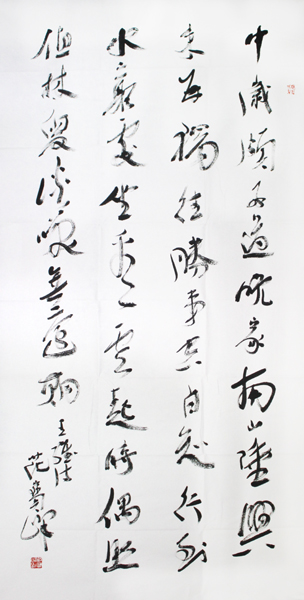 中歲頗好道晚家南山陲興
来每獨往勝事空自知行到
水窮處坐看雲起時偶然
值林叟談笑無還期
王維诗
范